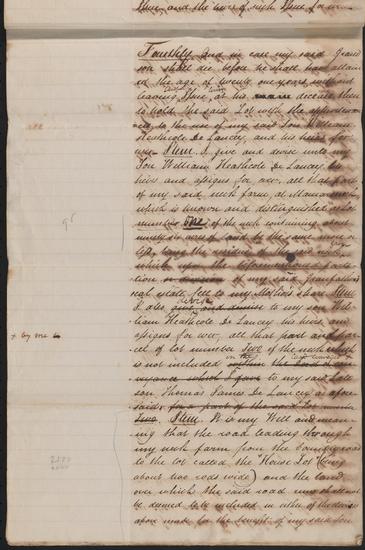 Issue and the heirs of such Issue for ever
Fourthly And in case my said Grand
son shall die before he shall have attain
ed the age of twenty one years without
leaving Issue at his decease then
to hold the said Lot with the appurtenan
ces to the use of my son William
Heathcote De Lancey, and his heirs for
ever Item. I give and devise unto my
Son William Heathcote De Lancey his
heirs and assigns for ever, all that part
of my said neck farm, at Mamaroneck
which is known and distinguished as Lot
number One of the neck containing about
ninety six acres of land be the same more or
less, being the
which upon the
tion of my said Grandfather's
real estate fell to my Mother's share Item
I also devise and devise to my son Wil
liam Heathcote De Lancey his heirs and
assigns for ever, all that part and par
x by me
cel of lot number Two of the neck which
is not included in the within the
veyance which I gave to my said late
son Thomas James De Lancey as afore
said, for a part of the said Lot number
Two. Item. It is my Will and mean
ing that the road leading through
my neck farm from the
to the lot called the House Lot (being
about two rods wide) and the land
over which the said road runs shall not
be deemed to be included in either of the devises
afore made for the benefit of my said son